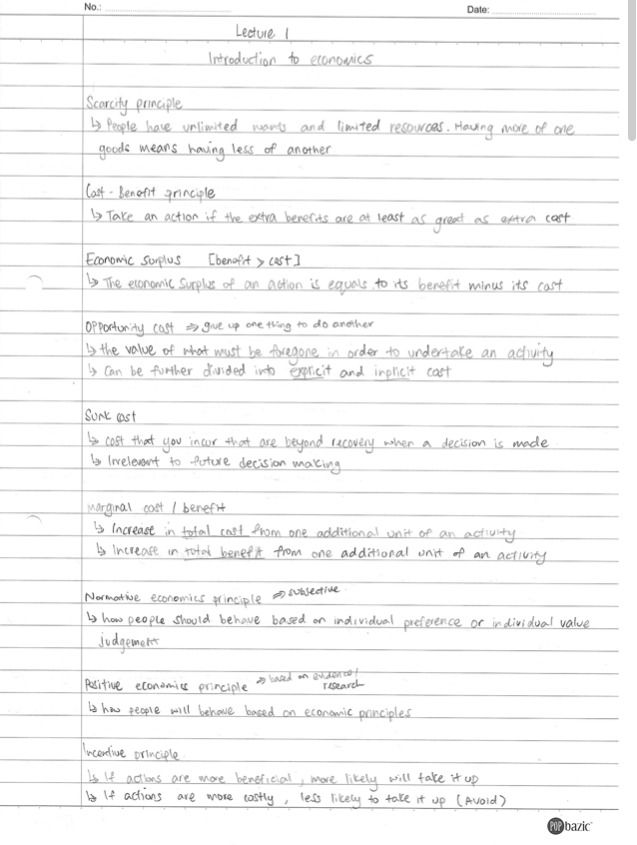 No.:
Date:
Lecture 1
Introduction to economics
Scarcity principle
↳ People have unlimited wants and limited resources. Having more of one
goods means having less of another
Cost - Benefit principle
↳ Take an action if the extra benefits are at least as great as extra cost
Economic Surplus [benefit > cost]
↳ The economic surplus of an action is equals to its benefit minus its cost
Opportunity cost ⇒ give up one thing to do another
↳ the value of what must be foregone in order to undertake an activity
↳ Can be further divided into explicit and inplicit cost
Sunk cost
↳ cost that you incur that are beyond recovery when a decision is made
↳ Irrelevant to future decision making
Marginal cost / benefit
↳ Increase in total cost from one additional unit of an activity
↳ Increase in total benefit from one additional unit of an activity
Normative economics principle ⇒ subjective
↳ how people should behave based on individual preference or individual value
judgement
Positive economics principle ⇒ based on evidence /
research
↳ how people will behave based on economic principles
Incentive principle
↳ If actions are more beneficial, more likely will take it up
↳ If actions are more costly, less likely to take it up (Avoid)
POP bazic